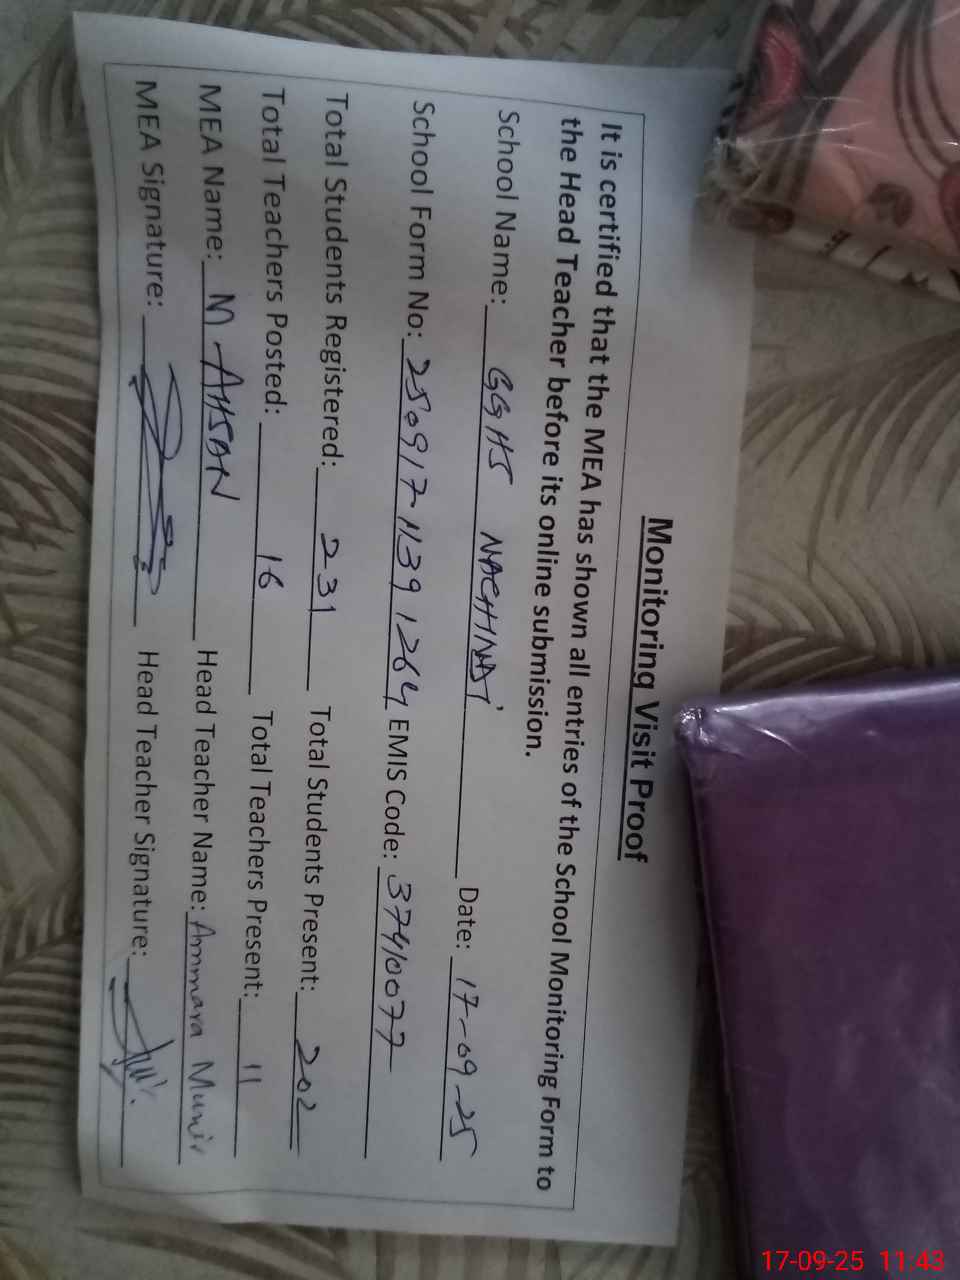 Monitoring Visit Proof
It is certified that the MEA has shown all entries of the School Monitoring Form to
the Head Teacher before its online submission.
School Name: GGHS Date: 17-09-25
School Form No: 250917 1139 1264 EMIS Code: 37410077
Total Students Registered: 231 Total Students Present: 202
Total Teachers Posted: 16 Total Teachers Present: 11
MEA Name: M AHSAN Head Teacher Name: Ammara Munir
MEA Signature: Head Teacher Signature:
17-09-25 11:43